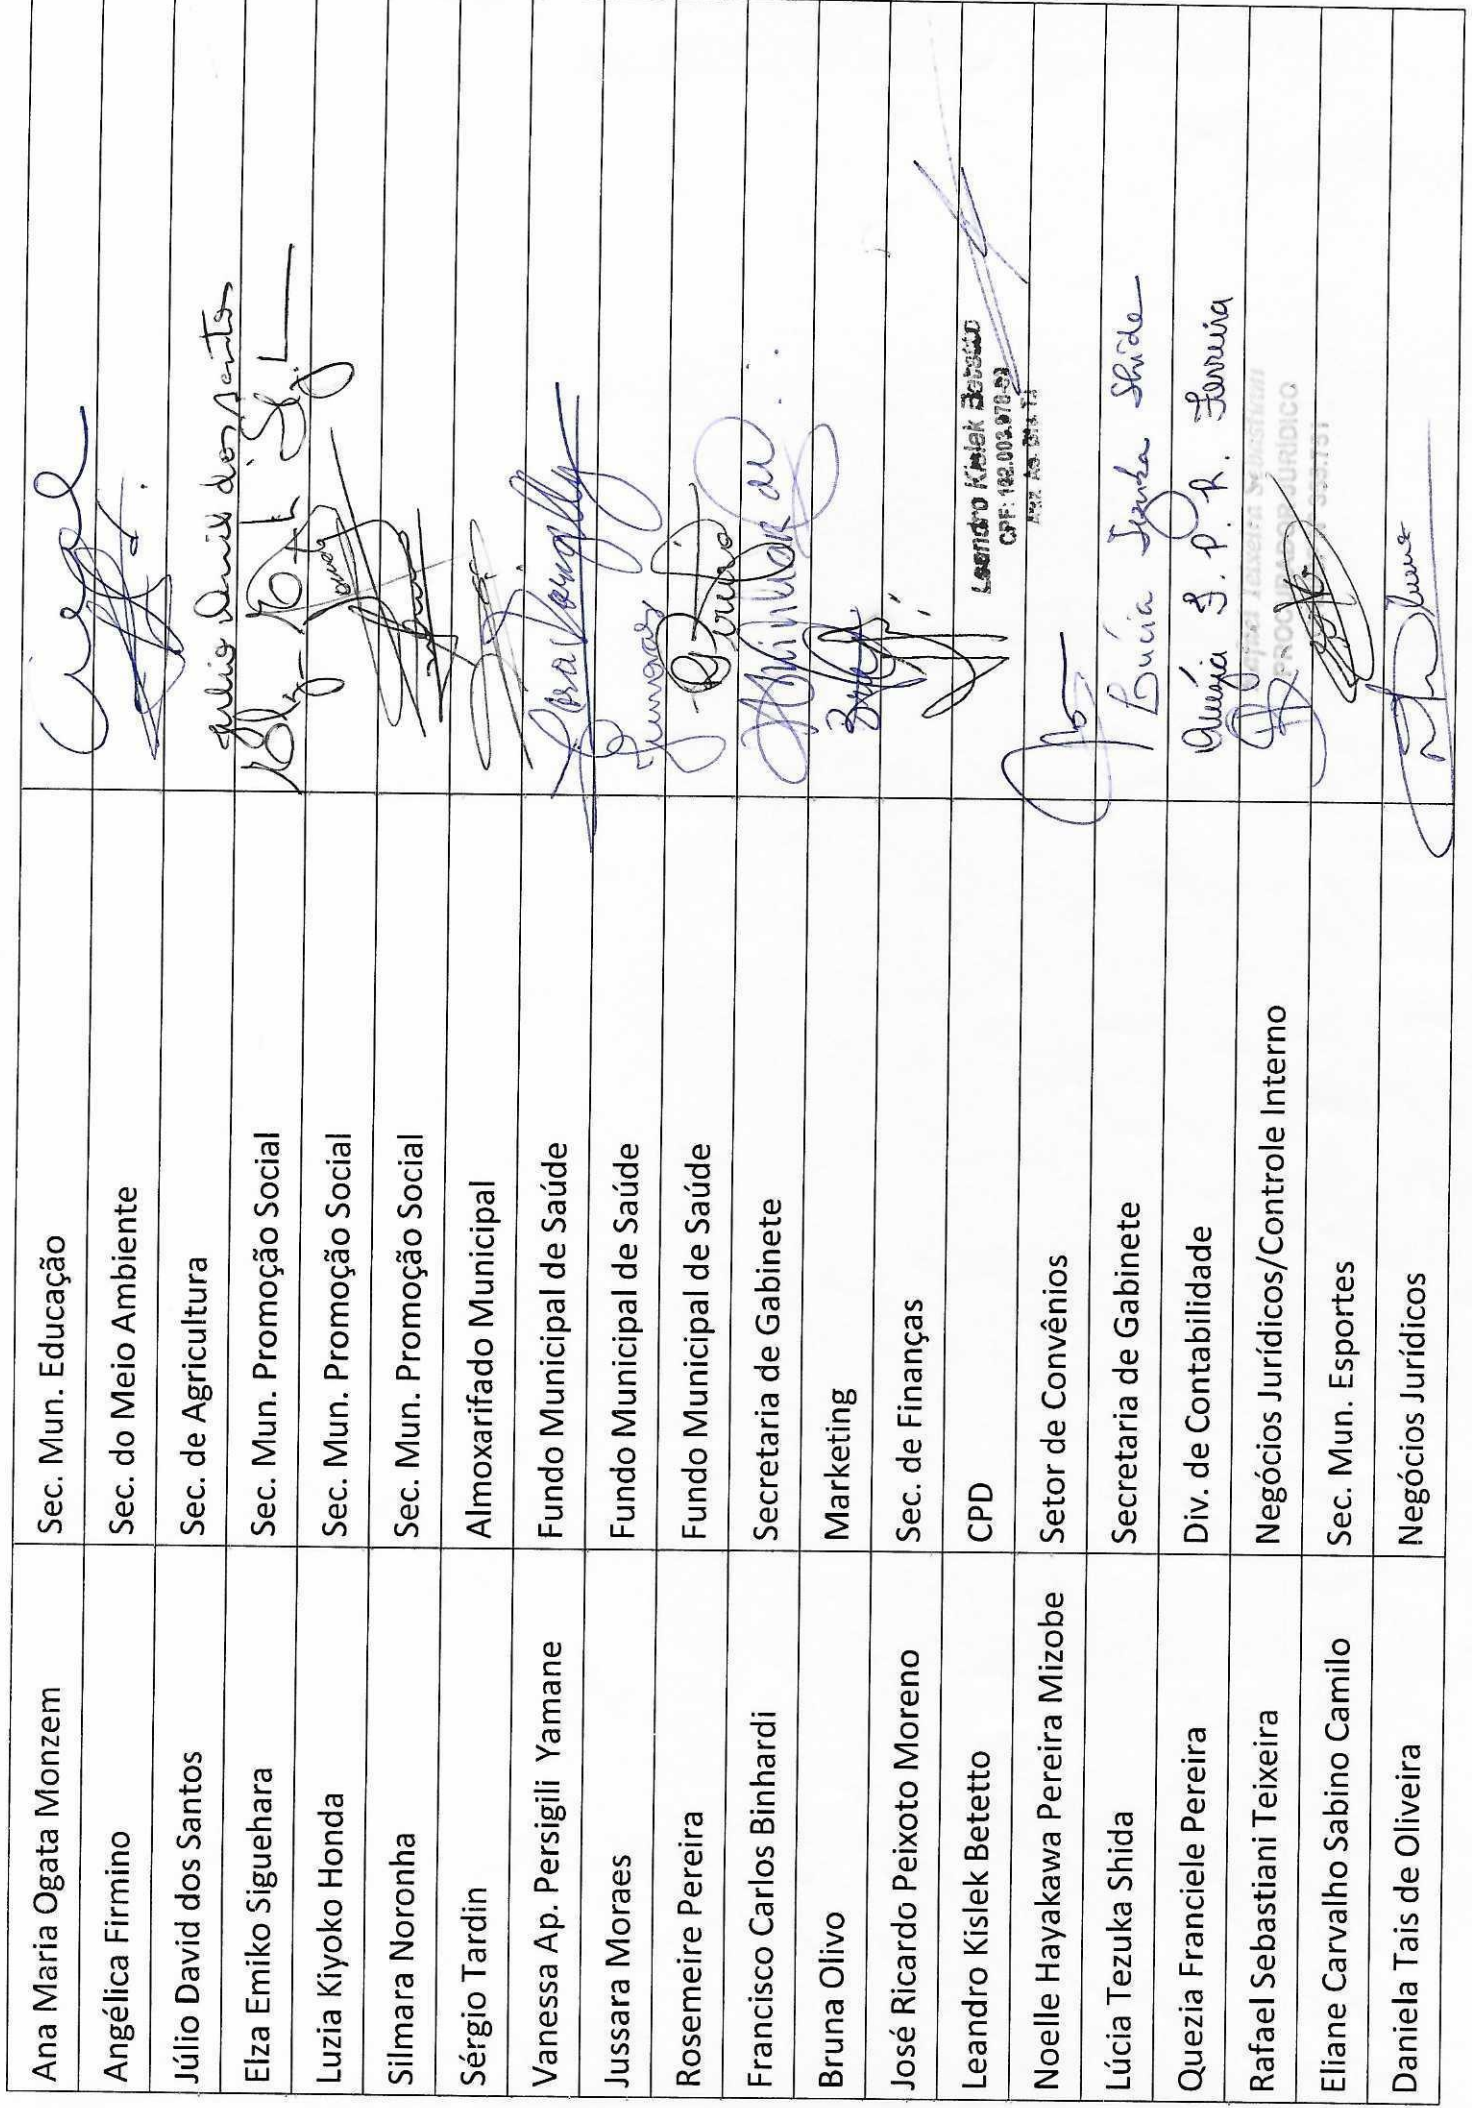 Ana Maria Ogata Monzem Sec. Mun. Educação
Angélica Firmino Sec. do Meio Ambiente
Júlio David dos Santos Sec. de Agricultura
Elza Emiko Siguehara Sec. Mun. Promoção Social
Luzia Kiyoko Honda Sec. Mun. Promoção Social
Silmara Noronha Sec. Mun. Promoção Social
Sérgio Tardin Almoxarifado Municipal
Vanessa Ap. Persigili Yamane Fundo Municipal de Saúde
Jussara Moraes Fundo Municipal de Saúde
Rosemeire Pereira Fundo Municipal de Saúde
Francisco Carlos Binhardi Secretaria de Gabinete
Bruna Olivo Marketing
José Ricardo Peixoto Moreno Sec. de Finanças
Leandro Kislek Betetto CPD Leandro Kislek Betetto
Noelle Hayakawa Pereira Mizobe Setor de Convênios
Lúcia Tezuka Shida Secretaria de Gabinete Lúcia Tezuka Shida
Quezia Franciele Pereira Div. de Contabilidade F. P. R. Ferreira
Rafael Sebastiani Teixeira Negócios Jurídicos/Controle Interno PROCURADOR JURÍDICO
Eliane Carvalho Sabino Camilo Sec. Mun. Esportes
Daniela Tais de Oliveira Negócios Jurídicos